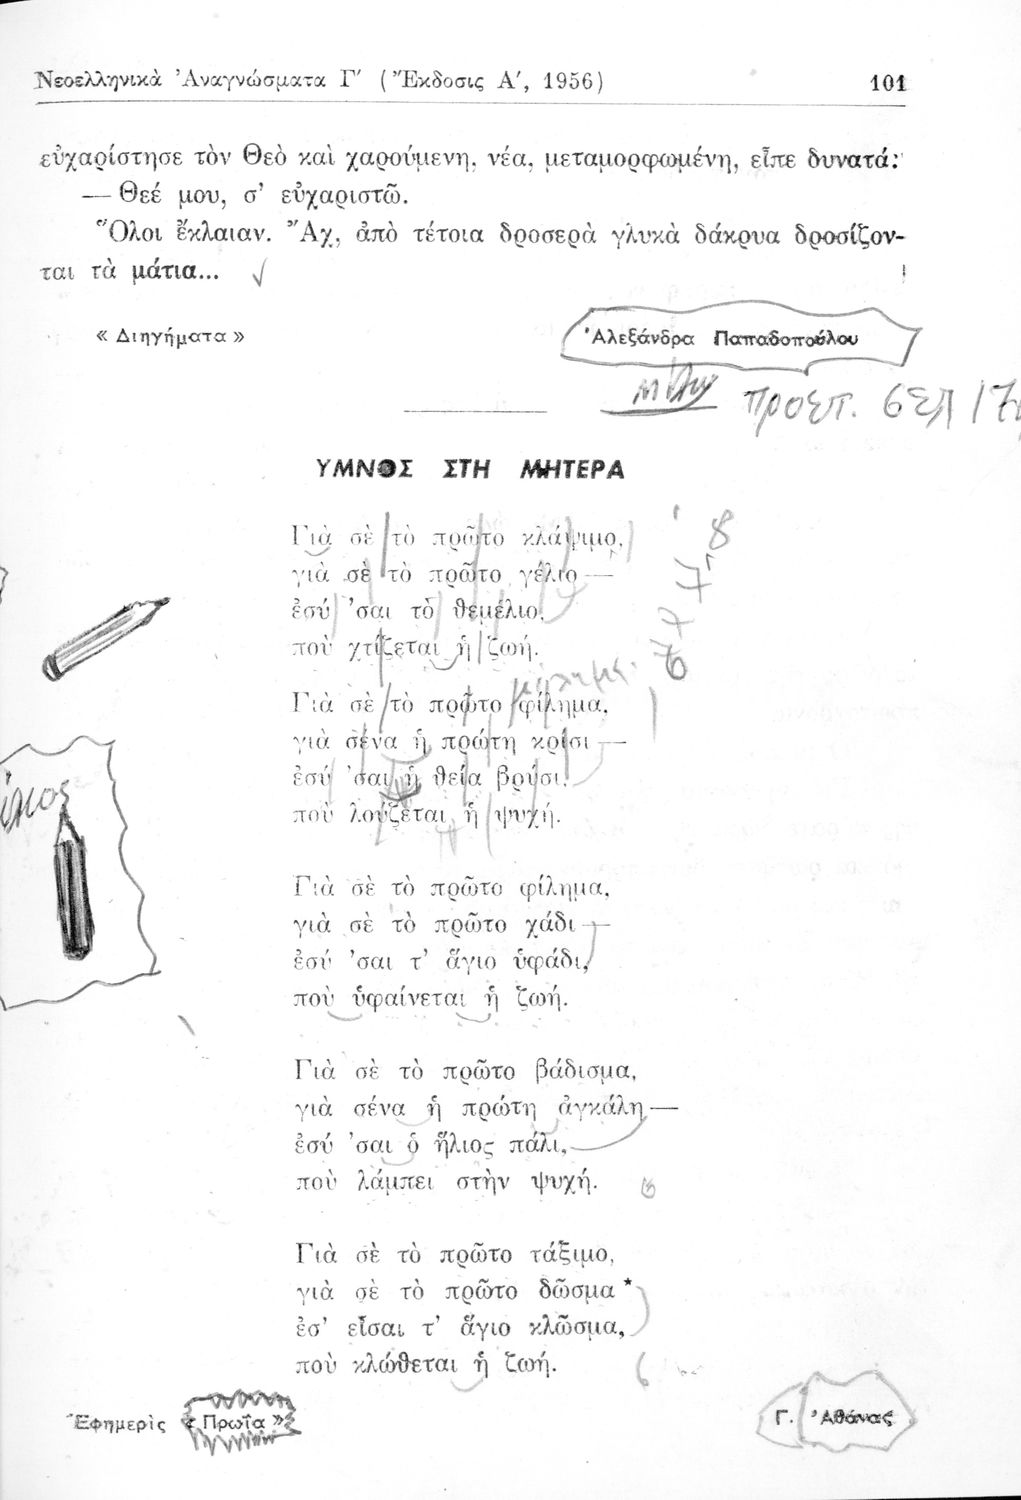 Νεοελληνικὰ Ἀναγνώσματα Γ′ (Ἔκδοσις Α′, 1956) 101
εὐχαρίστησε τὸν Θεὸ καὶ χαρούμενη, νέα, μεταμορφωμένη, εἶπε δυνατά:
— Θεέ μου, σ’ εὐχαριστῶ.
Ὅλοι ἔκλαιαν. Ἄχ, ἀπὸ τέτοια δροσερὰ γλυκὰ δάκρυα δροσίζον-
ται τὰ μάτια...
« Διηγήματα » Ἀλεξάνδρα Παπαδοπούλου
προετ. σελ
ΥΜΝΟΣ ΣΤΗ ΜΗΤΕΡΑ
Γιὰ σὲ τὸ πρῶτο κλάψιμο,
γιὰ σὲ τὸ πρῶτο γέλιο —
ἐσύ ’σαι τὸ θεμέλιο,
ποὺ χτίζεται ἡ ζωή.
Γιὰ σὲ τὸ πρῶτο φίλημα,
γιὰ σένα ἡ πρώτη κρίσι —
ἐσύ ’σαι ἡ θεία βρύσι,
ποὺ λούζεται ἡ ψυχή.
Γιὰ σὲ τὸ πρῶτο φίλημα,
γιὰ σὲ τὸ πρῶτο χάδι —
ἐσύ ’σαι τ’ ἅγιο ὑφάδι,
ποὺ ὑφαίνεται ἡ ζωή.
Γιὰ σὲ τὸ πρῶτο βάδισμα,
γιὰ σένα ἡ πρώτη ἀγκάλη —
ἐσύ ’σαι ὁ ἥλιος πάλι,
ποὺ λάμπει στὴν ψυχή.
Γιὰ σὲ τὸ πρῶτο τάξιμο,
γιὰ σὲ τὸ πρῶτο δῶσμα *
ἐσ’ εἶσαι τ’ ἅγιο κλῶσμα,
ποὺ κλώθεται ἡ ζωή.
Ἐφημερὶς « Πρωΐα » Γ. Ἀθάνας